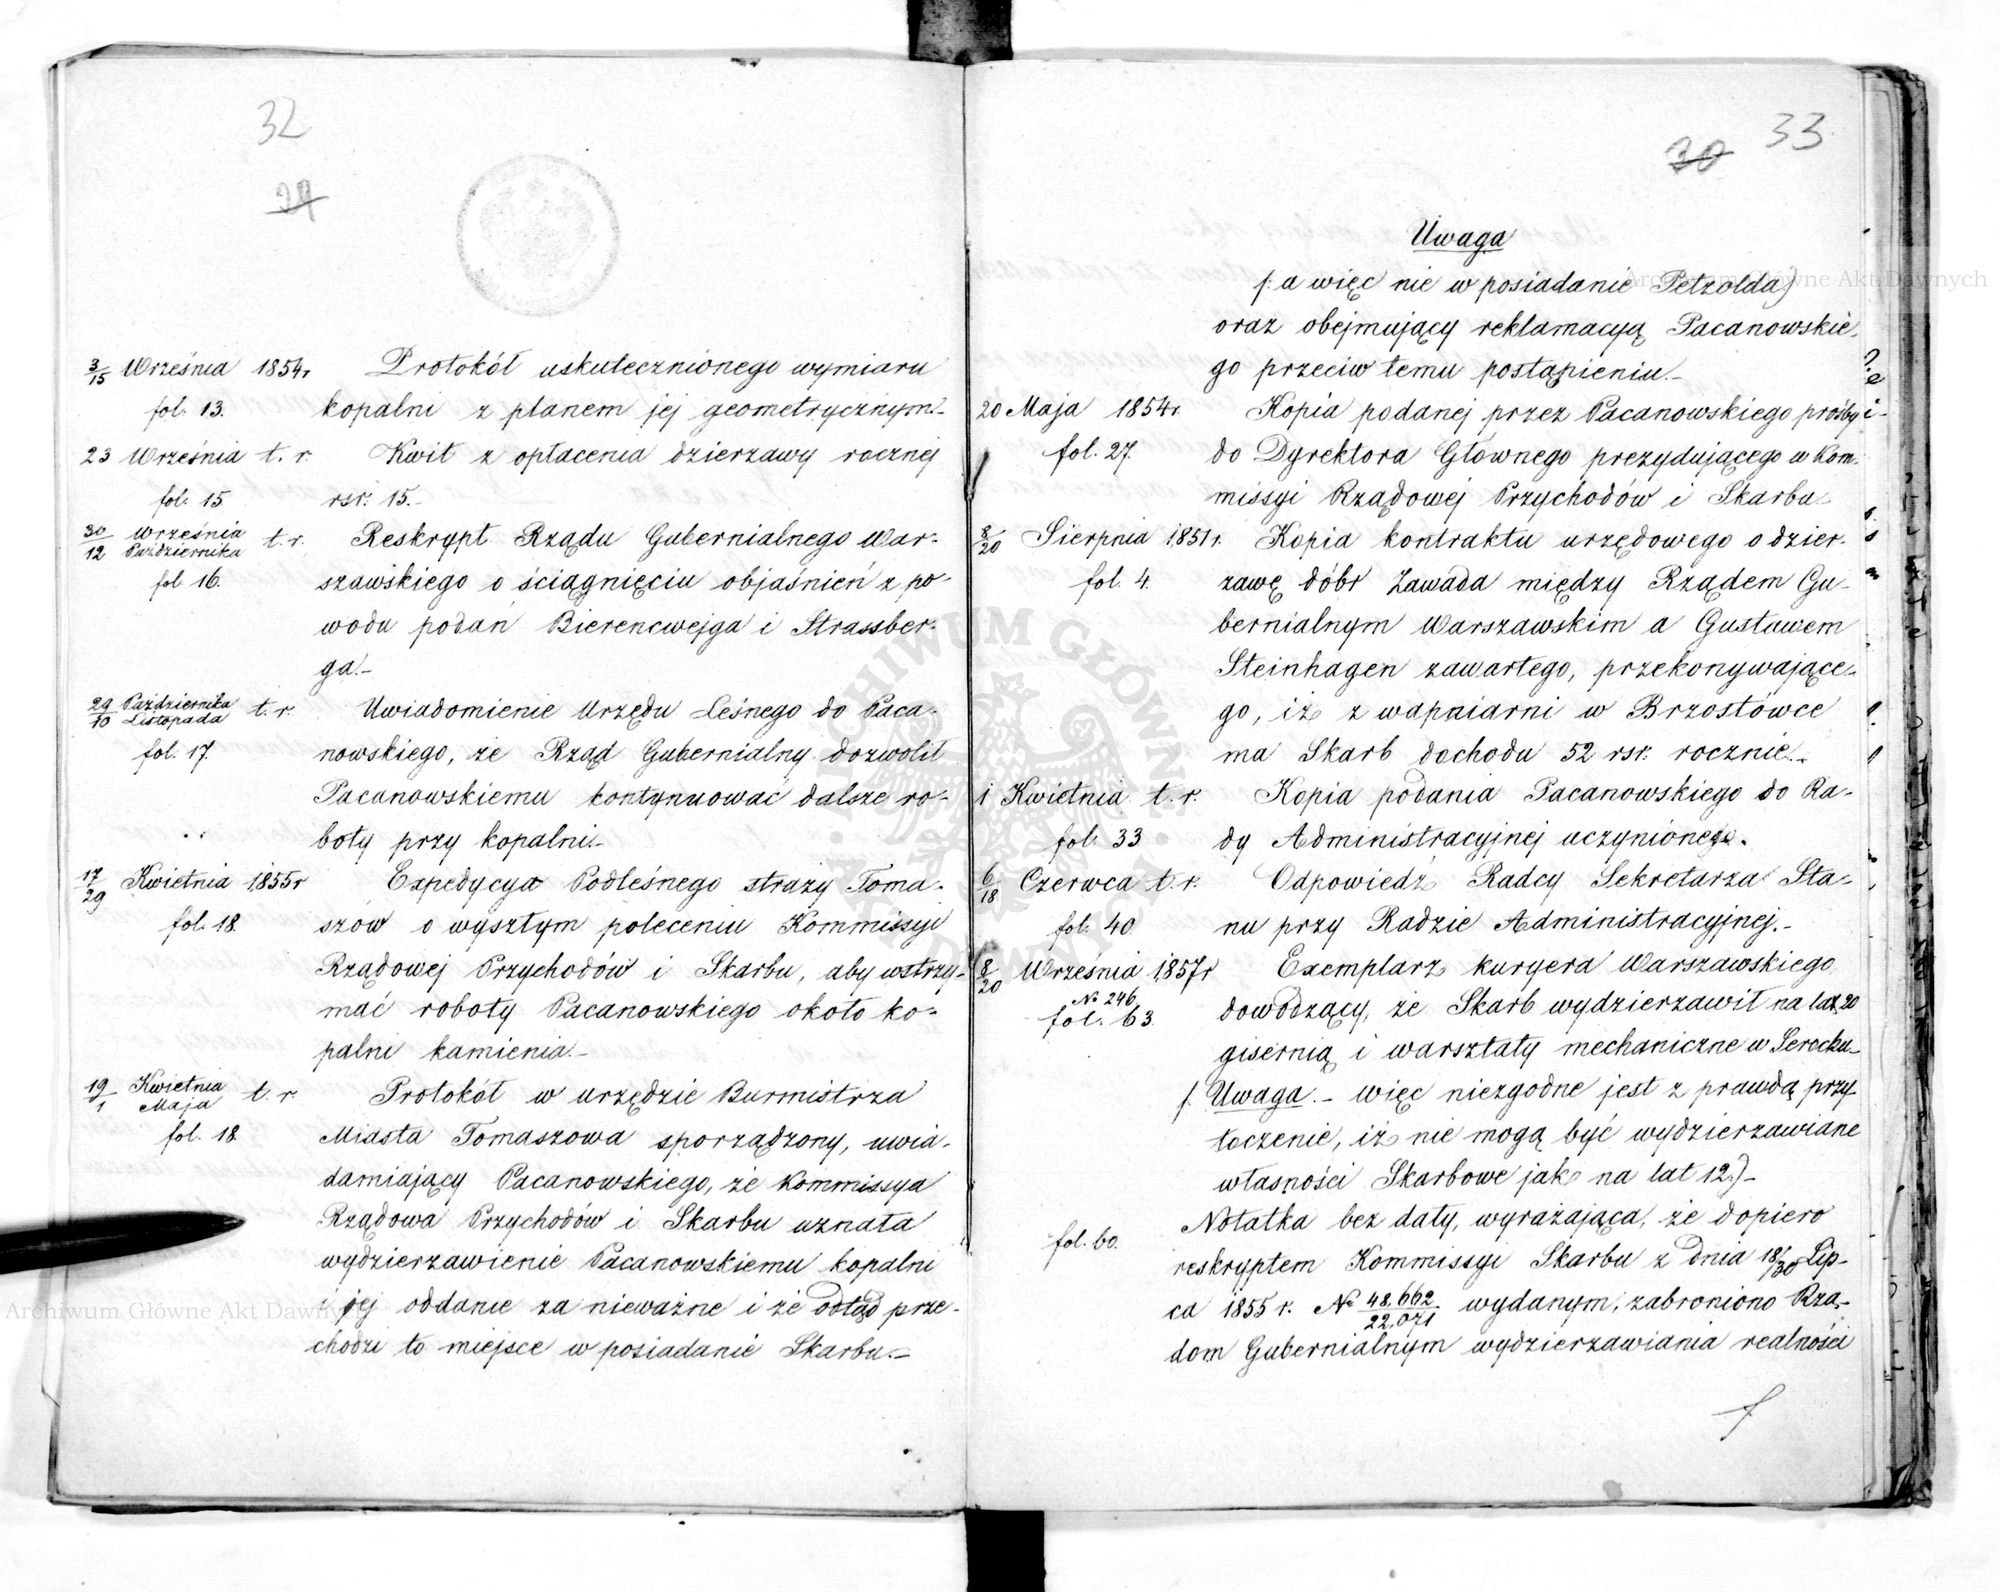 32
29
3/15 Września 1854r Protokół uskutecznionego wymiaru
fol. 13. kopalni z planem jej geometrycznym.-
23 Września t. r. Kwit z opłacenia dzierzawy rocznej
fol. 15 rsr. 15.-
30/12 Września/Października t. r. Reskrypt Rządu Gubernialnego War-
fol 16. szawskiego o ściągnięciu objaśnień z po-
wodu podań Bierencwejga i Strassber-
ga.-
29/10 Października/Listopada t. r. Uwiadomienie Urzędu Leśnego do Paca-
fol. 17. nowskiego, że Rząd Gubernialny dozwolił
Pacanowskiemu kontynuować dalsze ro-
boty przy kopalni.-
17/29 Kwietnia 1855r Expedycya Podleśnego straży Toma-
fol. 18. szów o wyszłym poleceniu Kommissyi
Rządowej Przychodów i Skarbu, aby wstrzy-
mać roboty Pacanowskiego około ko-
palni kamienia.-
19/1 Kwietnia/Maja t. r. Protokół w urzędzie Burmistrza
fol. 18 Miasta Tomaszowa sporządzony, uwia-
damiający Pacanowskiego, że Kommissya
Rządowa Przychodów i Skarbu uznała
wydzierzawienie Pacanowskiemu kopalni
i jej oddanie za nieważne i że odtąd prze-
chodzi to miejsce w posiadanie Skarbu.-
33
30
Uwaga
/: a więc nie w posiadanie Petzolda)
oraz obejmujący reklamacyą Pacanowskie-
go przeciw temu postąpieniu.-
20 Maja 1854r. Kopia podanej przez Pacanowskiego prośby
fol. 27. do Dyrektora Głównego prezydującego w Kom-
missyi Rządowej Przychodów i Skarbu.
8/20 Sierpnia 1851r. Kopia kontraktu urzędowego o dzier-
fol. 4. zawę dóbr Zawada między Rządem Gu-
bernialnym Warszawskim a Gustawem
Steinhagen zawartego, przekonywające-
go, iż z wapniarni w Brzostówce
ma Skarb dochodu 52 rsr. rocznie.-
1 Kwietnia t. r. Kopia podania Pacanowskiego do Ra-
fol. 33 dy Administracyjnej uczynionego.
6/18 Czerwca t. r. Odpowiedź Radcy Sekretarza Sta-
fol. 40 nu przy Radzie Administracyjnej.-
8/20 Września 1857r Exemplarz kuryera Warszawskiego
No 246
fol. 63. dowodzący, że Skarb wydzierzawił na lat 20
gisernią i warsztaty mechaniczne w Serocku-
/. Uwaga.- więc niezgodne jest z prawdą przy-
toczenie, iż nie mogą być wydzierzawiane
własności Skarbowe jak na lat 12.)-
fol. 60. Notatka bez daty, wyrażająca, że dopiero
reskryptem Kommissyi Skarbu z dnia 18/30 Lip-
ca 1855 r. No 48,662/22,071 wydanym, zabroniono Rzą-
dom Gubernialnym wydzierzawiania realności
Archiwum Główne Akt Dawnych
Archiwum Główne Akt Dawnych
ARCHIWUM GŁÓWNE AKT DAWNYCH